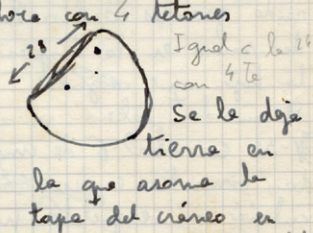 con 4 tetones
28
Igual a la 24
con 4 Te
Se la deja
tierra en
la que asoma la
tapa del cráneo en